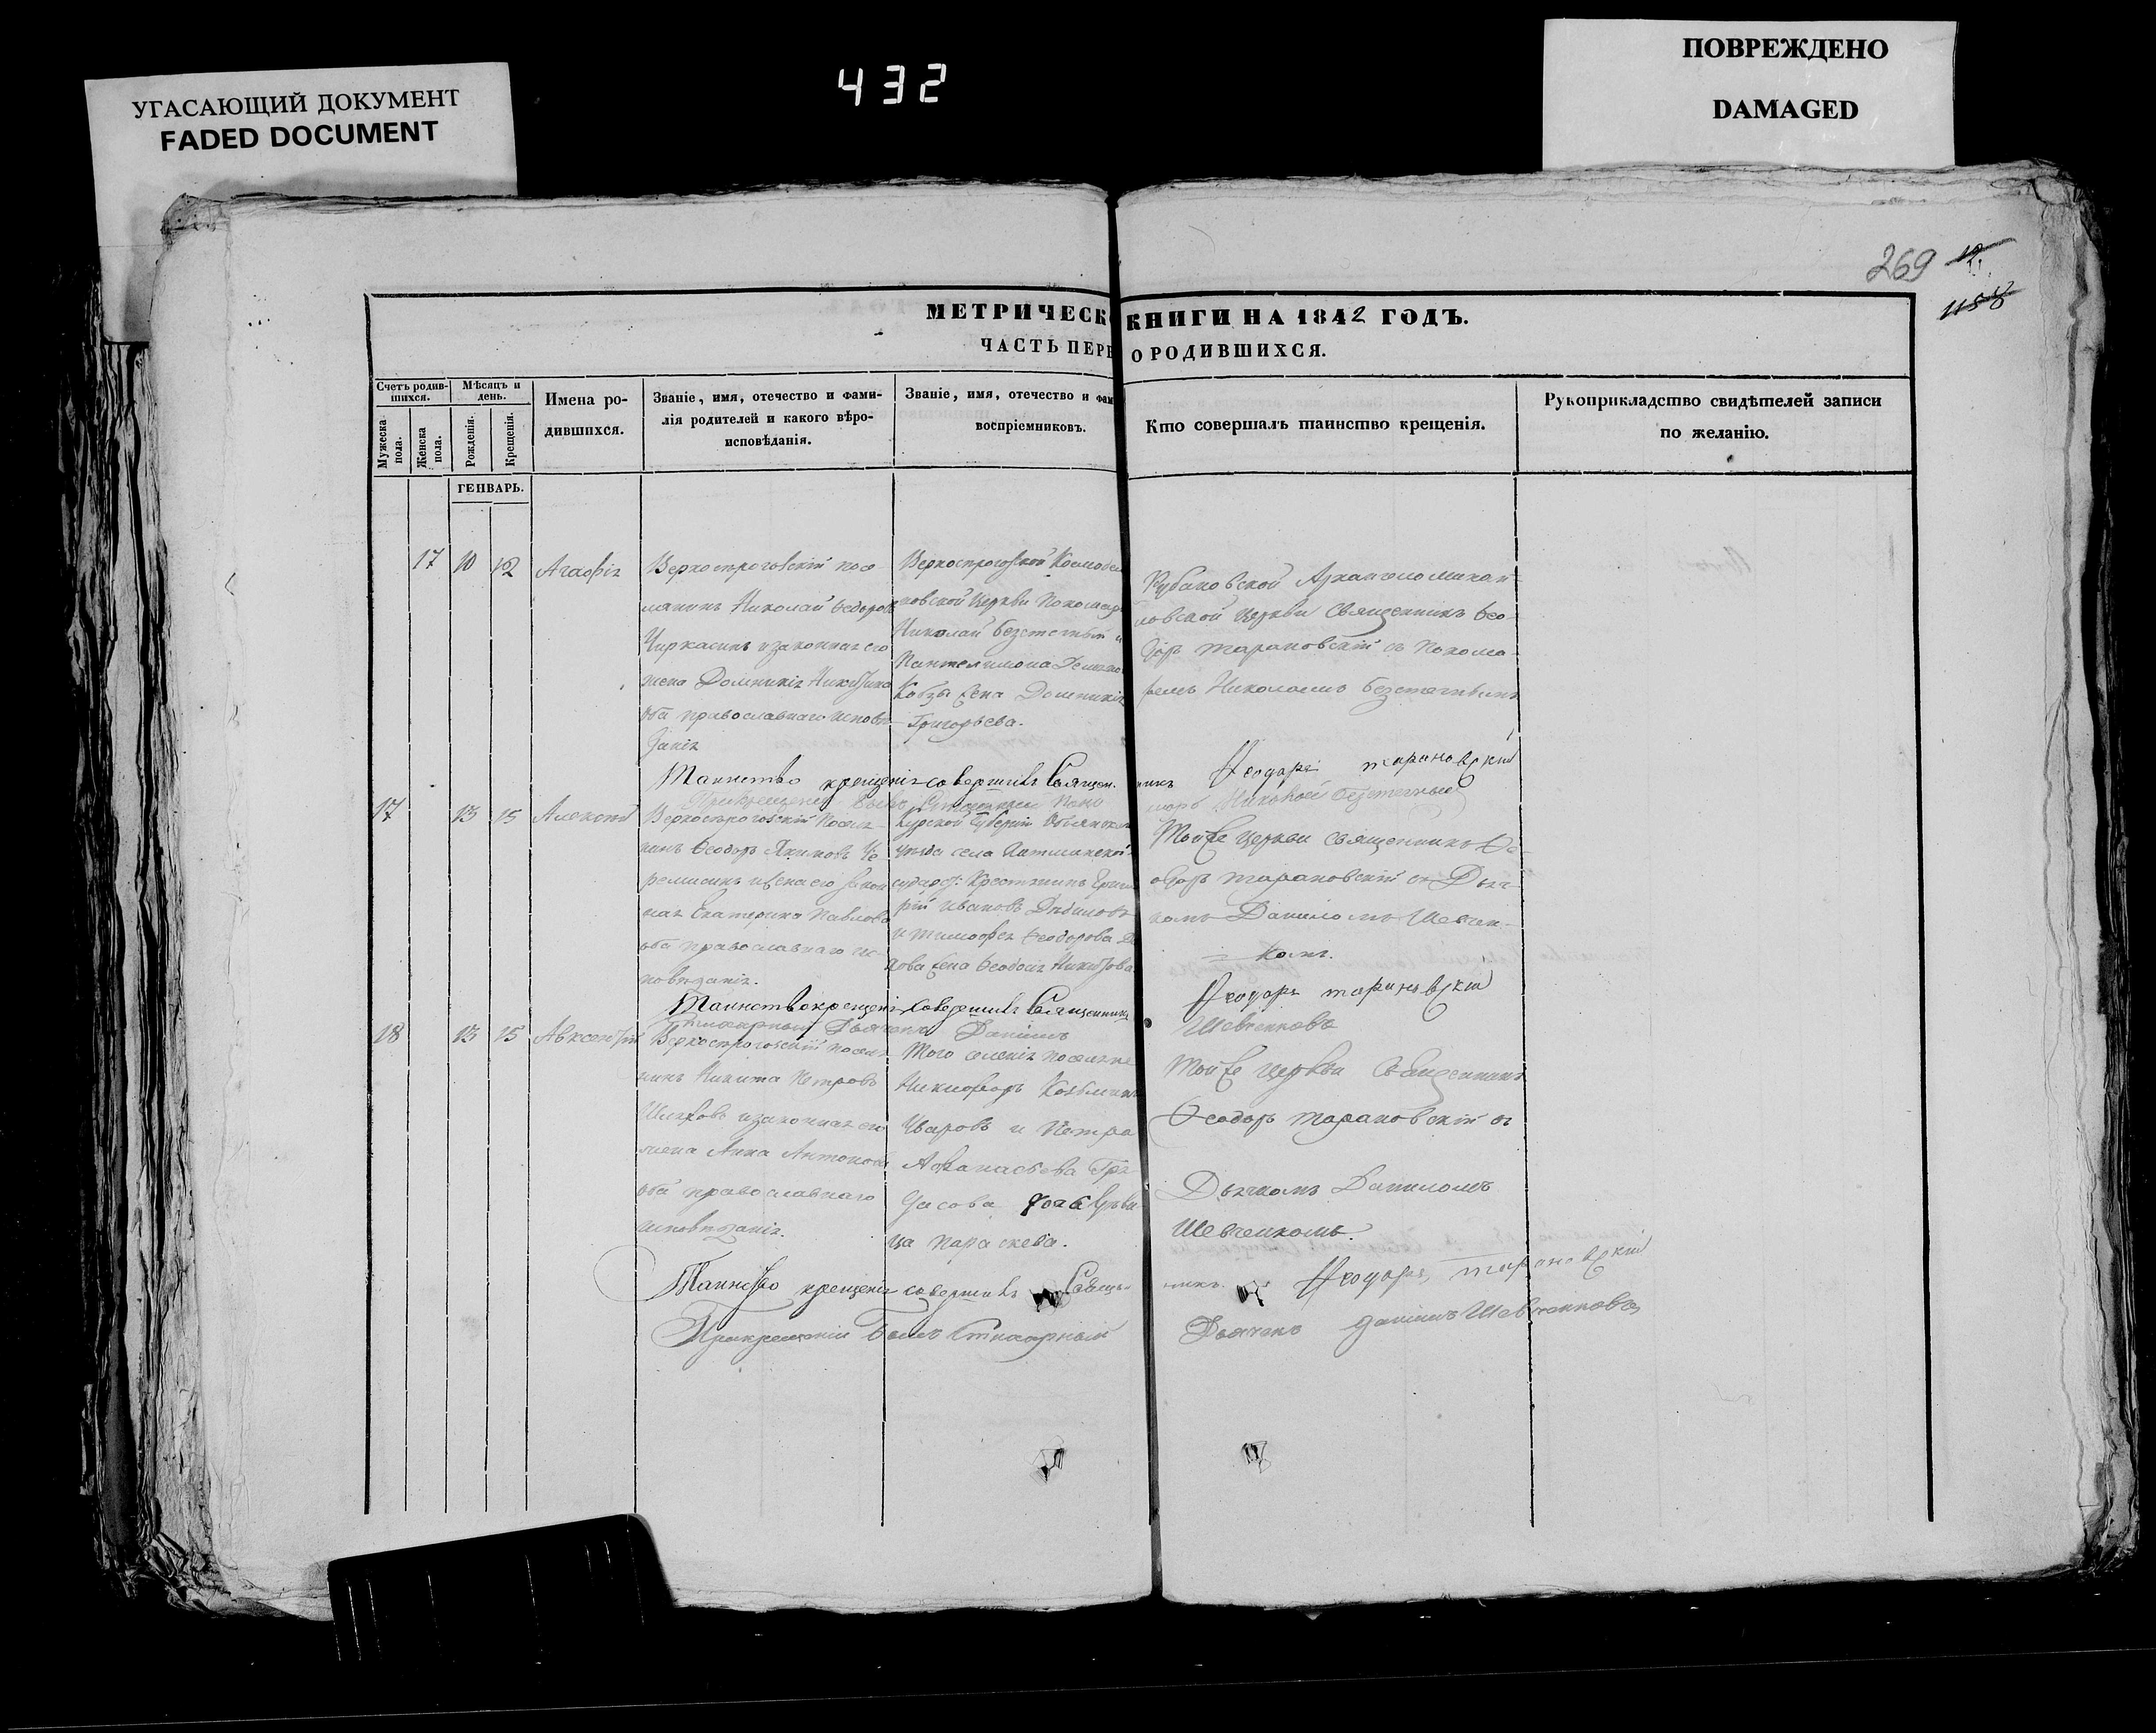 УГАСАЮЩИЙ ДОКУМЕНТ
FADED DOCUMENT
432
ПОВРЕЖДЕНО
DAMAGED
269
1158
МЕТРИЧЕСК КНИГИ НА 1842 ГОДЪ.
ЧАСТЬ ПЕРВ О РОДИВШИХСЯ.
Счетъ родив-
шихся.
Мужеска
пола.
Женска
пола.
Мѣсяцъ и
день.
Рожденія.
Крещенія.
Имена ро-
дившихся.
Званіе, имя, отечество и фами-
лія родителей и какого вѣро-
исповѣданія.
Званіе, имя, отечество и фам
воспріемниковъ.
Кто совершалъ таинство крещенія.
Рукоприкладство свидѣтелей записи
по желанію.
ГЕНВАРЬ.
17 10 12 Агафія
Верхостроговскій посе-
лянинъ Николай Ѳедоровъ
Чиркасинъ и законная его
жена Домникія Никитина
оба православнаго исповѣ-
данія
Верхострогозской
новской Церкви Пономарь
Николай Безстетный и
Пантелимона
Кобзы жена Домникія
Григорьева.
Рубановской Архангеломихаи-
ловской Церкви Священникъ Ѳео-
доръ Тарановскій съ Понома-
ремъ Николаемъ Безстетнымъ
Таинство крещенія совершилъ Священникъ Ѳеодоръ Тарановскій
При крещеніи былъ Пономаръ Николай Безстетный
17 13 15 Алексѣй
Верхострогозскій Поселя-
нинъ Ѳеодоръ Якимовъ Че-
ремисинъ и жена его закон-
ная Екатерина Павлова
оба православнаго ис-
повѣданія.
Курской Губерніи
уѣзда села
сударст: Крестянинъ Григо
рій Ивановъ
и Тимофея Ѳеодорова
жена Ѳеодосія Никитова
Тойже Церкви Священникъ Ѳе-
одоръ Тарановскій съ Дьяч-
комъ Даниломъ Шевчен-
комъ.
Таинство крещенія совершилъ Священникъ Ѳеодоръ Тарановскій
Дьячекъ Данілъ Шевченковъ
18 13 15 Авксентій
Верхострогозскій поселя-
нинъ Никита Петровъ
и законная его
жена Анна Антонова
оба православнаго
исповѣданія.
Того селенія поселяне
Никифоръ Козьминъ
Уваровъ и Петра
Афанасьева
дочь дѣви-
ца Параскева.
Тойже Церкви Священникъ
Ѳеодоръ Тарановскій съ
Дьячкомъ Даниломъ
Шевченкомъ.
Таинство крещенія совершилъ Священ-никъ. Ѳеодоръ Тарановскій
При крещеніи былъ Дьячекъ Данілъ Шевченковъ